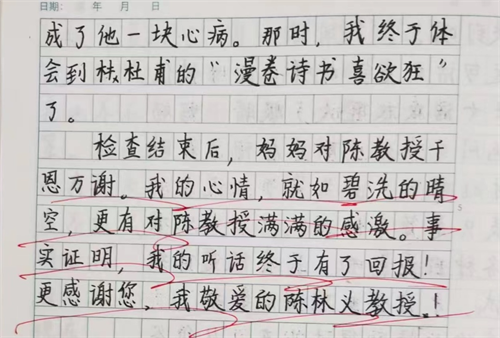 日期： 年 月 日
成了他一块心病。那时，我终于体
会到杜甫的“漫卷诗书喜欲狂”
了。
检查结束后，妈妈对陈教授千
恩万谢。我的心情，就如碧洗的晴
空，更有对陈教授满满的感激。事
实证明，我的听话终于有了回报！
更感谢您，我敬爱的陈林火教授！